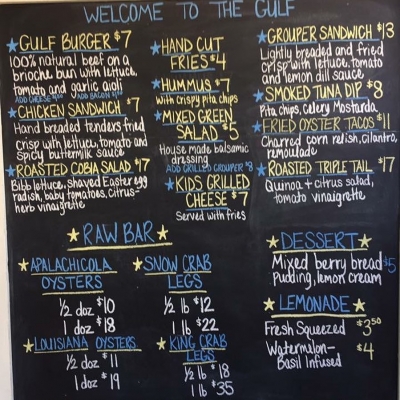 WELCOME TO THE GULF
GULF BURGER $7
100% natural beef on a
brioche bun with lettuce,
tomato and garlic aioli
ADD CHEESE $1.00 ADD BACON $1.00
CHICKEN SANDWICH $7
Hand breaded tenders fried
crisp with lettuce, tomato and
spicy buttermilk sauce
ROASTED COBIA SALAD $17
Bibb lettuce, shaved Easter egg
radish, baby tomatoes, citrus-
herb vinaigrette
HAND CUT
FRIES $4
HUMMUS $7
With crispy pita chips
MIXED GREEN
SALAD $5
House made balsamic
dressing
ADD GRILLED GROUPER $8
KIDS GRILLED
CHEESE $7
Served with fries
GROUPER SANDWICH $13
Lightly breaded and fried
crisp with lettuce, tomato
and lemon dill sauce
SMOKED TUNA DIP $8
Pita chips, Celery Mostarda
FRIED OYSTER TACOS $11
Charred corn relish, cilantro,
remoulade
ROASTED TRIPLE TAIL $17
Quinoa + citrus salad,
tomato vinaigrette
RAW BAR
APALACHICOLA
OYSTERS
1/2 doz $10
1 doz $18
LOUISIANA OYSTERS
1/2 doz $11
1 doz $19
SNOW CRAB
LEGS
1/2 lb $12
1 lb $22
KING CRAB
LEGS
1/2 lb $18
1 lb $35
DESSERT
Mixed berry bread $5
pudding, lemon cream
LEMONADE
Fresh Squeezed $3.50
Watermelon- $4
Basil Infused